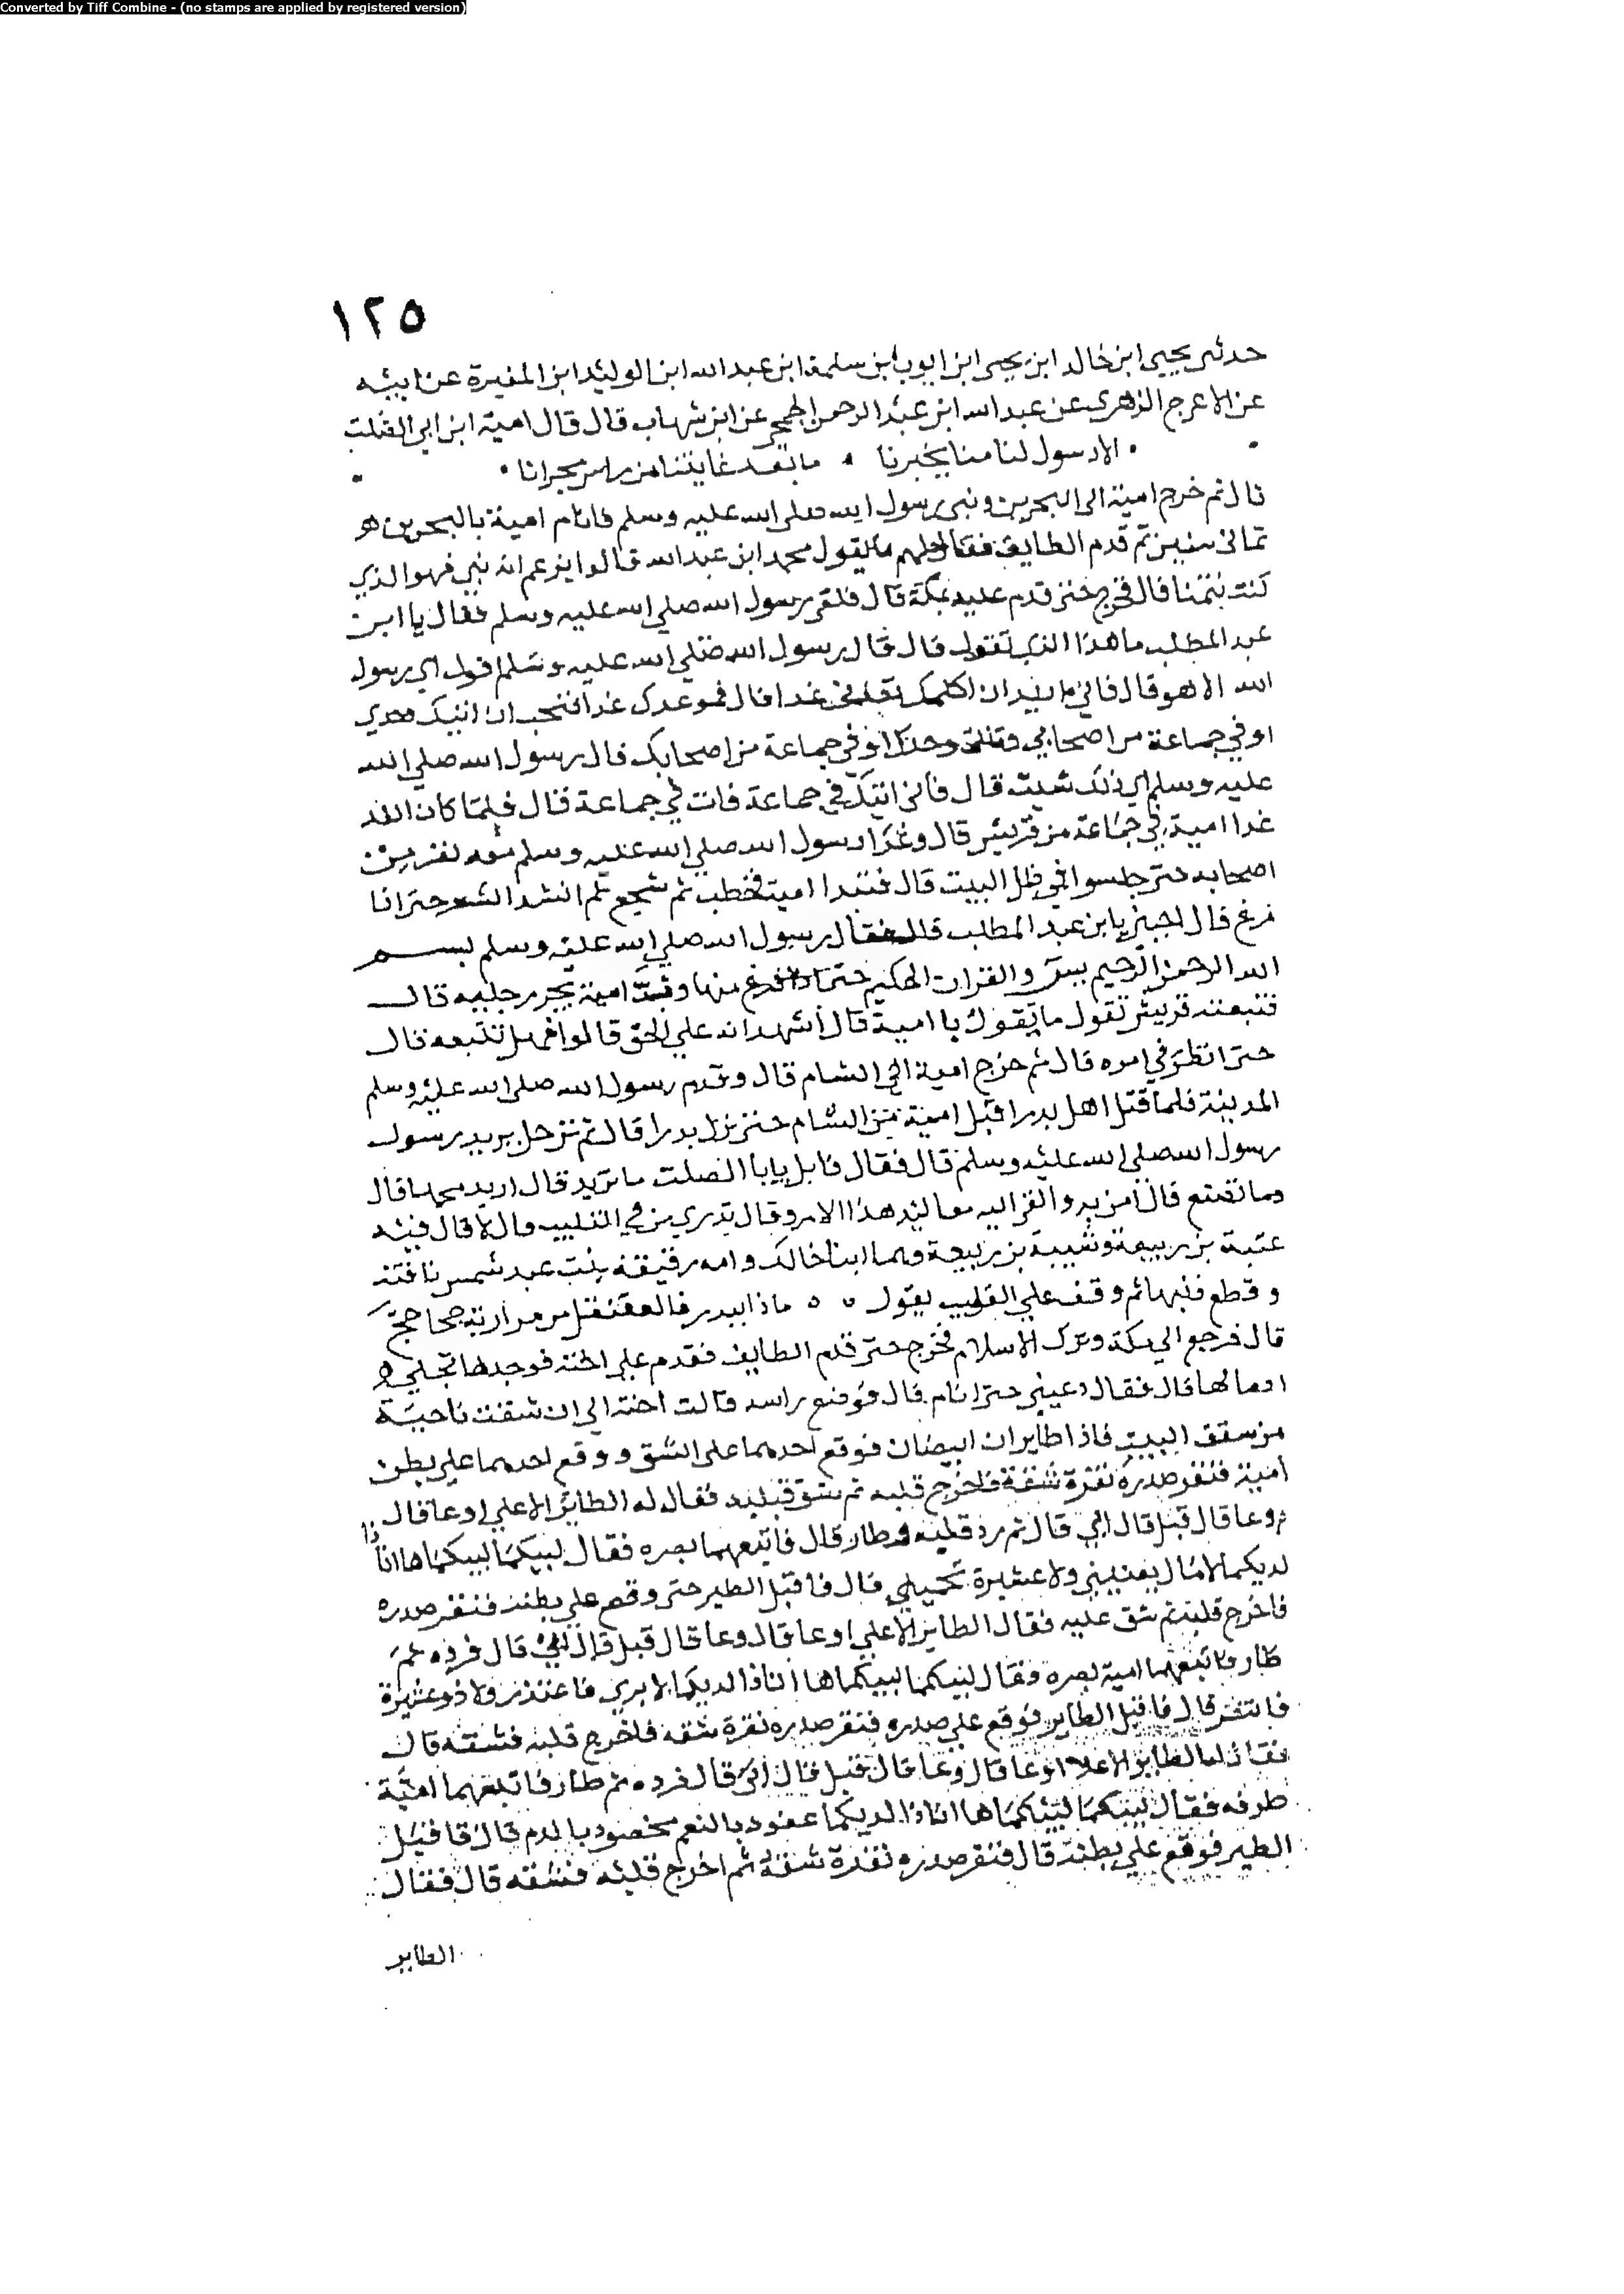 Converted by Tiff Combine - (no stamps are applied by registered version)
١٢٥
حدثنى يحيى ابن خالد ابن يحيى ابن ايوب ابن سلمة ابن عبد الله ابن الوليد ابن المغيرة عن ابيه
عن الاعرج الزهرى عن عبد الله ابن عبد الرحمن عن ابن شهاب قال قال امية ابن ابي الصلت
الا رسول لنا منا يخبرنا ما بعد غايتنا من راس مجرانا
قال ثم خرج امية الى البحرين ونبى رسول الله صلى الله عليه وسلم فاقام امية بالبحرين
ثمانى سنين ثم قدم الطايف فقال لهم ما يقول محمد ابن عبد الله قالوا يزعم انه نبي فهو الذي
كنت تتمنا قال فخرج حتى قدم عليه بمكة قال فلقى رسول الله صلي الله عليه وسلم فقال يا ابن
عبد المطلب ما هذا الذي تقول قال قال رسول الله صلي الله عليه وسلم اني رسول
الله الا هو قال فاني اريد ان اكلمك غدا قال فموعدك غدا فتحب ان اتيك وحدي
او في جماعة من اصحابي وحدك او في جماعة من اصحابك قال رسول الله صلي الله
عليه وسلم اي ذلك شيت قال فانى اتيك في جماعة فات في جماعة قال فلما كان الغد
غدا امية في جماعة من قريش قال وغدا رسول الله صلي الله عليه وسلم معه نفر من
اصحابه حتى جلسوا في ظل البيت قال فبدا امية فخطب ثم سجع ثم انشد الشعر حتى اذا
فرغ قال اجبني يابن عبد المطلب فقال رسول الله صلي الله عليه وسلم بسم
الله الرحمن الرحيم يس والقران الحكيم حتى اذا فرغ منها وثب امية يجر رجليه قال
فتبعته قريش تقول ما تقول يا امية قال اشهد انه علي الحق قالوا فهل تتبعه قال
حتى انظر في امره قال ثم خرج امية الي الشام قال وقدم رسول الله صلى الله عليه وسلم
المدينة فلما قتل اهل بدر اقبل امية من الشام حتى نزل بدرا قال ثم ترحل يريد رسول
رسول الله صلى الله عليه وسلم قال فقال قايل يابا الصلت ما تريد قال اريد محمدا قال
وما تصنع قال اومن به والقى اليه مقاليد هذا الامر قال تدري من في القليب قال لا قال فيه
عتبة بن ربيعة وشيبة بن ربيعة وهما ابنا خالك وامه رقيقة بنت عبد شمس
وقطع ذنبها ثم وقف علي القليب يقول ماذا ببدر فالعقنقل من مرازبة جحاجح
قال فرجع الي مكة وترك الاسلام فخرج حتى قدم الطايف فقدم علي اخته فوجدها
ادما لها قال فقال دعيني حتى انام قال فوضع راسه قالت اخته الي ان شقت ناحية
من سقف البيت فاذا طايران ابيضان فوقع احدهما على الشق ووقع احدهما علي بطن
امية فنقر صدره نقرة شقة فاخرج قلبه ثم شق قلبه فقال له الطاير الاعلي اوعا قال
وعا قال قبل قال ابي قال ثم رد قلبه وطار قال فاتبعهما بصره فقال لبيكما لبيكما ها انا ذا
لديكما لا مال يغنيني ولا عشيرة تحميني قال فاقبل الطير حتى وقع علي بطنه فنقر صدره
فاخرج قلبه ثم شق عليه فقال الطاير الاعلي اوعا قال وعا قال قبل قال ابي قال فرده ثم
طار فاتبعهما امية بصره وقال لبيكما لبيكما ها انا ذا لديكما لا بري فاعتذر ولا ذو عشيرة
فانتصر قال فاقبل الطاير فوقع علي صدره فنقر صدره نقرة شقه فاخرج قلبه فشقه قال
فقال له الطاير الاعلا اوعا قال وعا قال قبل قال ابى قال فرده ثم طار فاتبعهما امية
طرفه فقال لبيكما لبيكما ها انا ذا لديكما محفود بالنعم مخصود بالدم قال فاقبل
الطير فوقع علي بطنه قال فنقر صدره نقرة شقة ثم اخرج قلبه فشقه قال فقال
الطاير